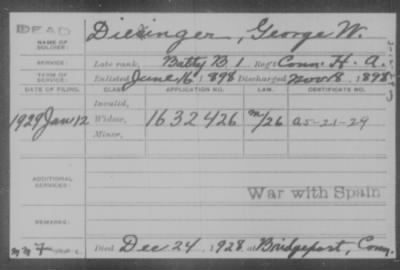 DEAD
Dietzinger, George W.
NAME OF SOLDIER:
SERVICE: Late rank, Batty B 1 Reg't Conn. H. A.
TERM OF SERVICE: Enlisted June 16 1898 Discharged Nov 8, 1898
DATE OF FILING. CLASS. APPLICATION NO. LAW. CERTIFICATE NO.
Invalid,
1929 Jan 12 Widow, 1632426 m/26 a5-21-29
Minor,
ADDITIONAL SERVICES:
War with Spain
REMARKS:
Died Dec 24, 1928 at Bridgeport, Conn.